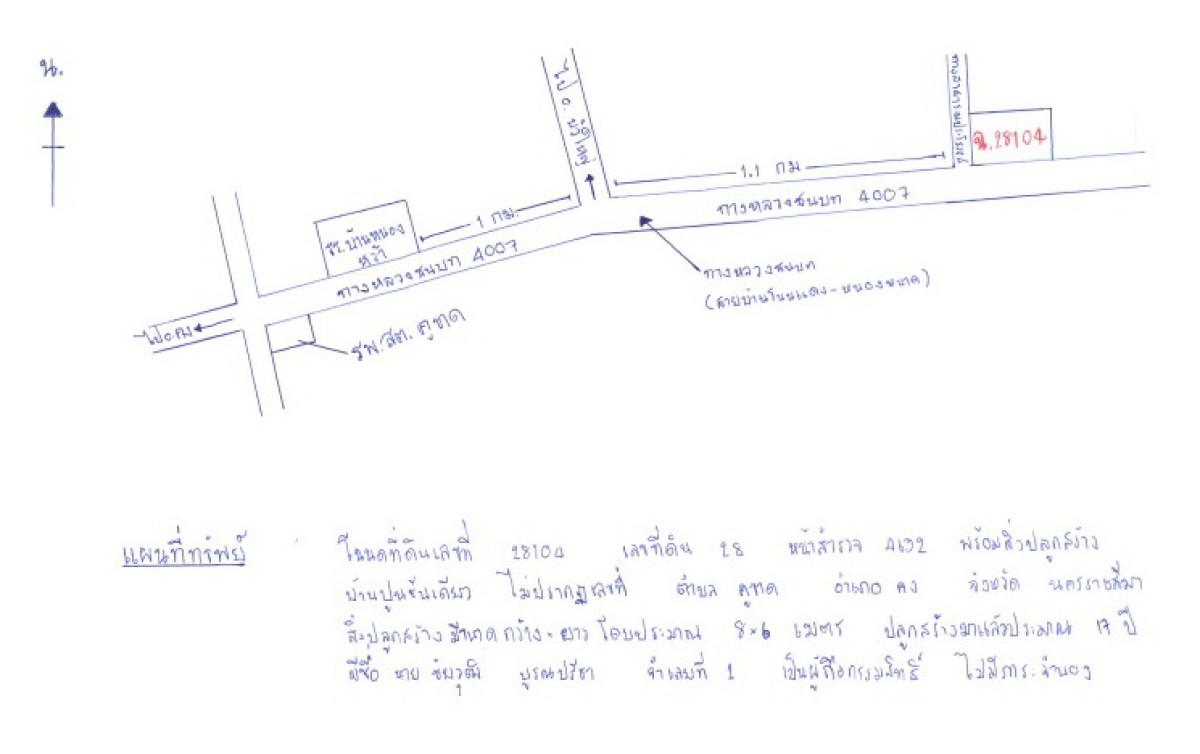 น.
ไป อ. บัวใหญ่
ทางสาธารณประโยชน์
ฉ.28104
1.1 กม
ทางหลวงชนบท 4007
1 กม.
รร.บ้านหนอง
หว้า
ทางหลวงชนบท 4007
ทางหลวงชนบท
(สายบ้านโนนแดง-หนองขนาด)
ไปอ.คง
รพ.สต. คูขาด
แผนที่ทรัพย์ : โฉนดที่ดินเลขที่ 28104 เลขที่ดิน 28 หน้าสำรวจ 4632 พร้อมสิ่งปลูกสร้าง
บ้านปูนชั้นเดียว ไม่ปรากฏเลขที่ ตำบล คูขาด อำเภอ คง จังหวัด นครราชสีมา
สิ่งปลูกสร้าง มีขนาด กว้าง×ยาว โดยประมาณ 8×6 เมตร ปลูกสร้างมาแล้วประมาณ 17 ปี
มีชื่อ นาย ชัยวุฒิ บูรณปรีชา จำเลยที่ 1 เป็นผู้ถือกรรมสิทธิ์ ไม่มีภาระจำนอง